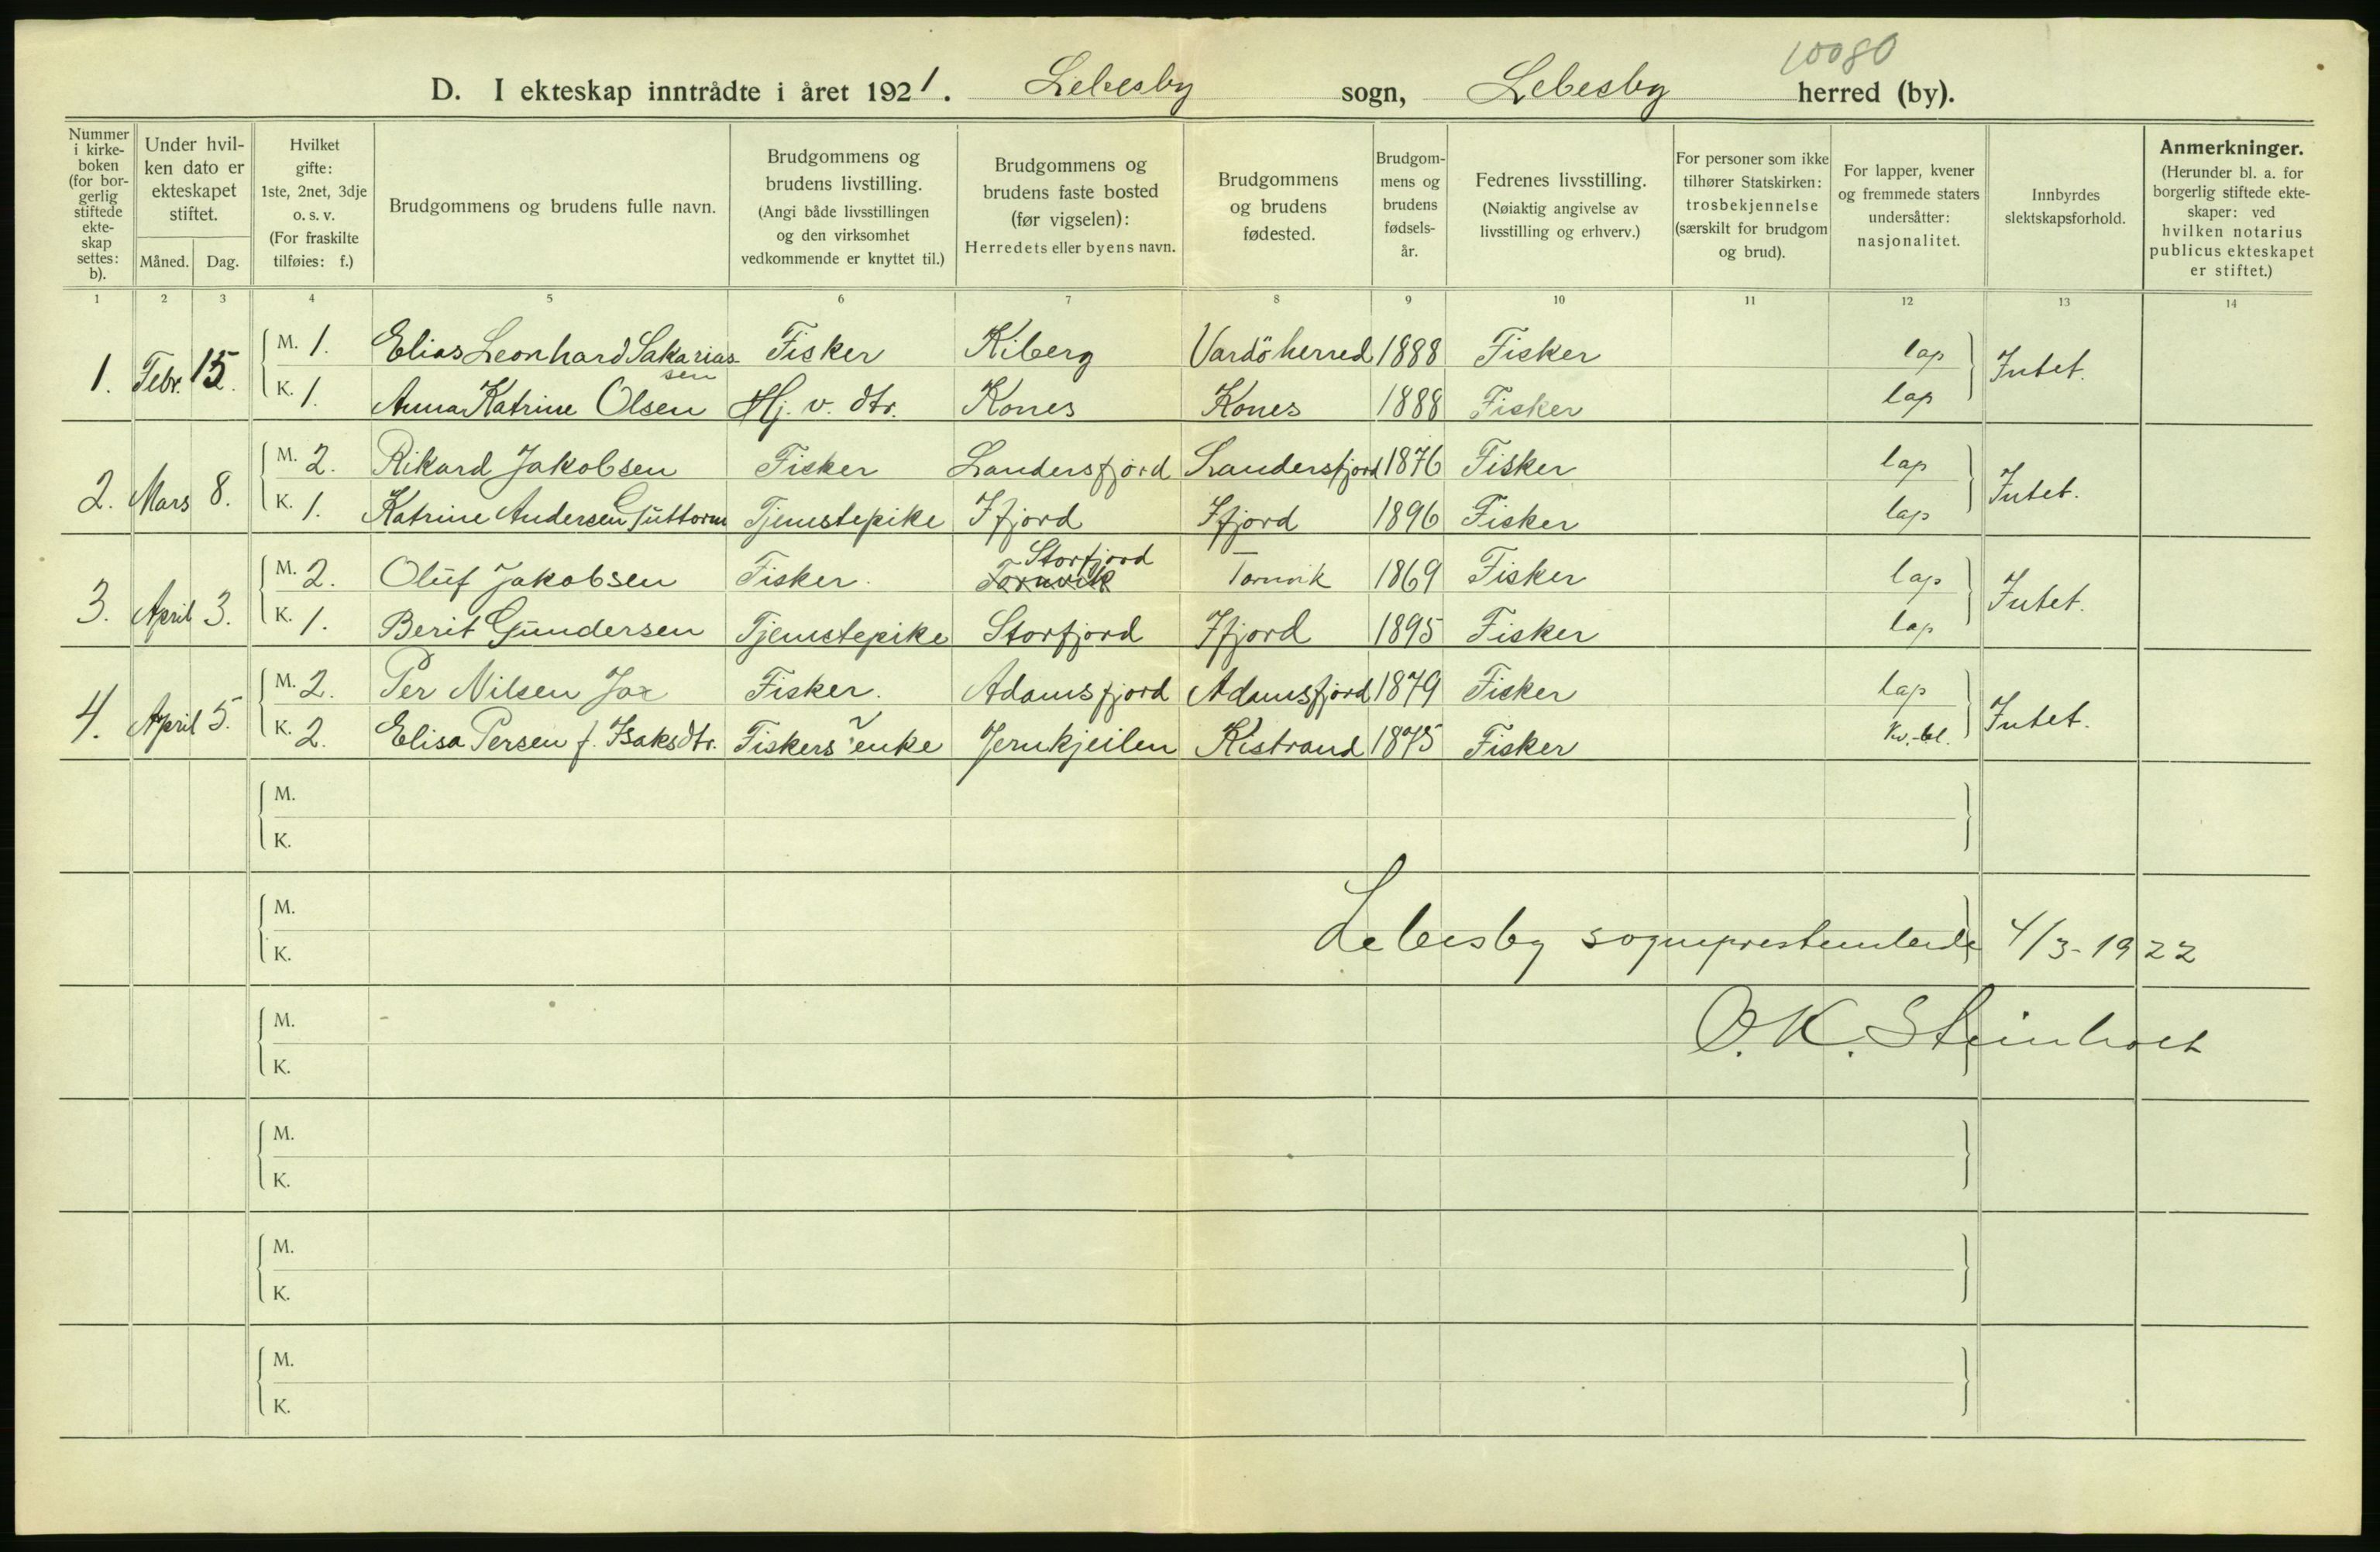 10080
D. I ekteskap inntrådte i året 1921. Lebesby sogn, Lebesby herred (by).
Nummer i kirkeboken (for borgerlig stiftede ekteskap settes: b).
Under hvilken dato er ekteskapet stiftet.
Måned. Dag.
Hvilket gifte: 1ste, 2net, 3dje o. s. v. (For fraskilte tilføies: f.)
Brudgommens og brudens fulle navn.
Brudgommens og brudens livstilling. (Angi både livsstillingen og den virksomhet vedkommende er knyttet til.)
Brudgommens og brudens faste bosted (før vigselen): Herredets eller byens navn.
Brudgommens og brudens fødested.
Brudgommens og brudens fødselsår.
Fedrenes livsstilling. (Nøiaktig angivelse av livsstilling og erhverv.)
For personer som ikke tilhører Statskirken: trosbekjennelse (særskilt for brudgom og brud).
For lapper, kvener og fremmede staters undersåtter: nasjonalitet.
Innbyrdes slektskapsforhold.
Anmerkninger. (Herunder bl. a. for borgerlig stiftede ekteskaper: ved hvilken notarius publicus ekteskapet er stiftet.)
1 2 3 4 5 6 7 8 9 10 11 12 13 14
1. Febr. 15. M. 1. Elias Leonhard Sakariassen Fisker Kiberg Vardö herred 1888 Fisker lap Intet.
K. 1. Anna Katrine Olsen Hj. v. dtr. Kones Kones 1888 Fisker lap
2. Mars 8. M. 2. Rikard Jakobsen Fisker Landersfjord Landersfjord 1876 Fisker lap Intet.
K. 1. Katrine Andersen Guttorm Tjenstepike Ifjord Ifjord 1896 Fisker lap
3. April 3. M. 2. Oluf Jakobsen Fisker. Tornvik Storfjord Tornvik 1869 Fisker lap Intet.
K. 1. Berit Gundersen Tjenstepike Storfjord Ifjord 1895 Fisker lap
4. April 5. M. 2. Per Nilsen Jox Fisker. Adamsfjord Adamsfjord 1879 Fisker lap Intet.
K. 2. Elisa Persen f. Isaksdtr. Fiskers enke Jernkjeilen Kistrand 1875 Fisker Kv.-bl.
M.
K.
M.
K.
Lebesby sogneprestembede 4/3-1922
M.
O. K. Steinholt
K.
M.
K.
M.
K.
M.
K.